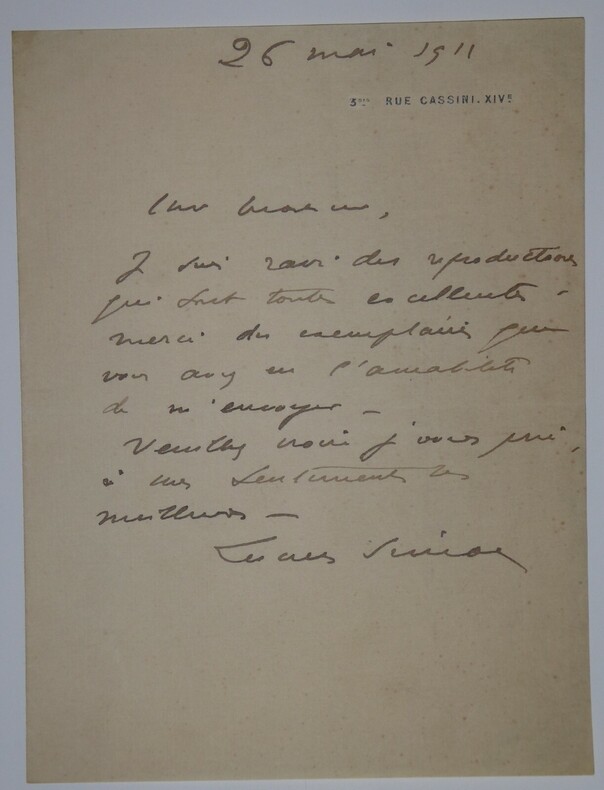 26 mai 1911
3BIS RUE CASSINI. XIVE
Cher Monsieur,
Je suis ravi des reproductions
qui sont toutes excellentes -
merci des exemplaires que
vous avez eu l'amabilité
de m'envoyer -
Veuillez croire je vous prie,
à mes sentiments les
meilleurs -
Lucien Simon